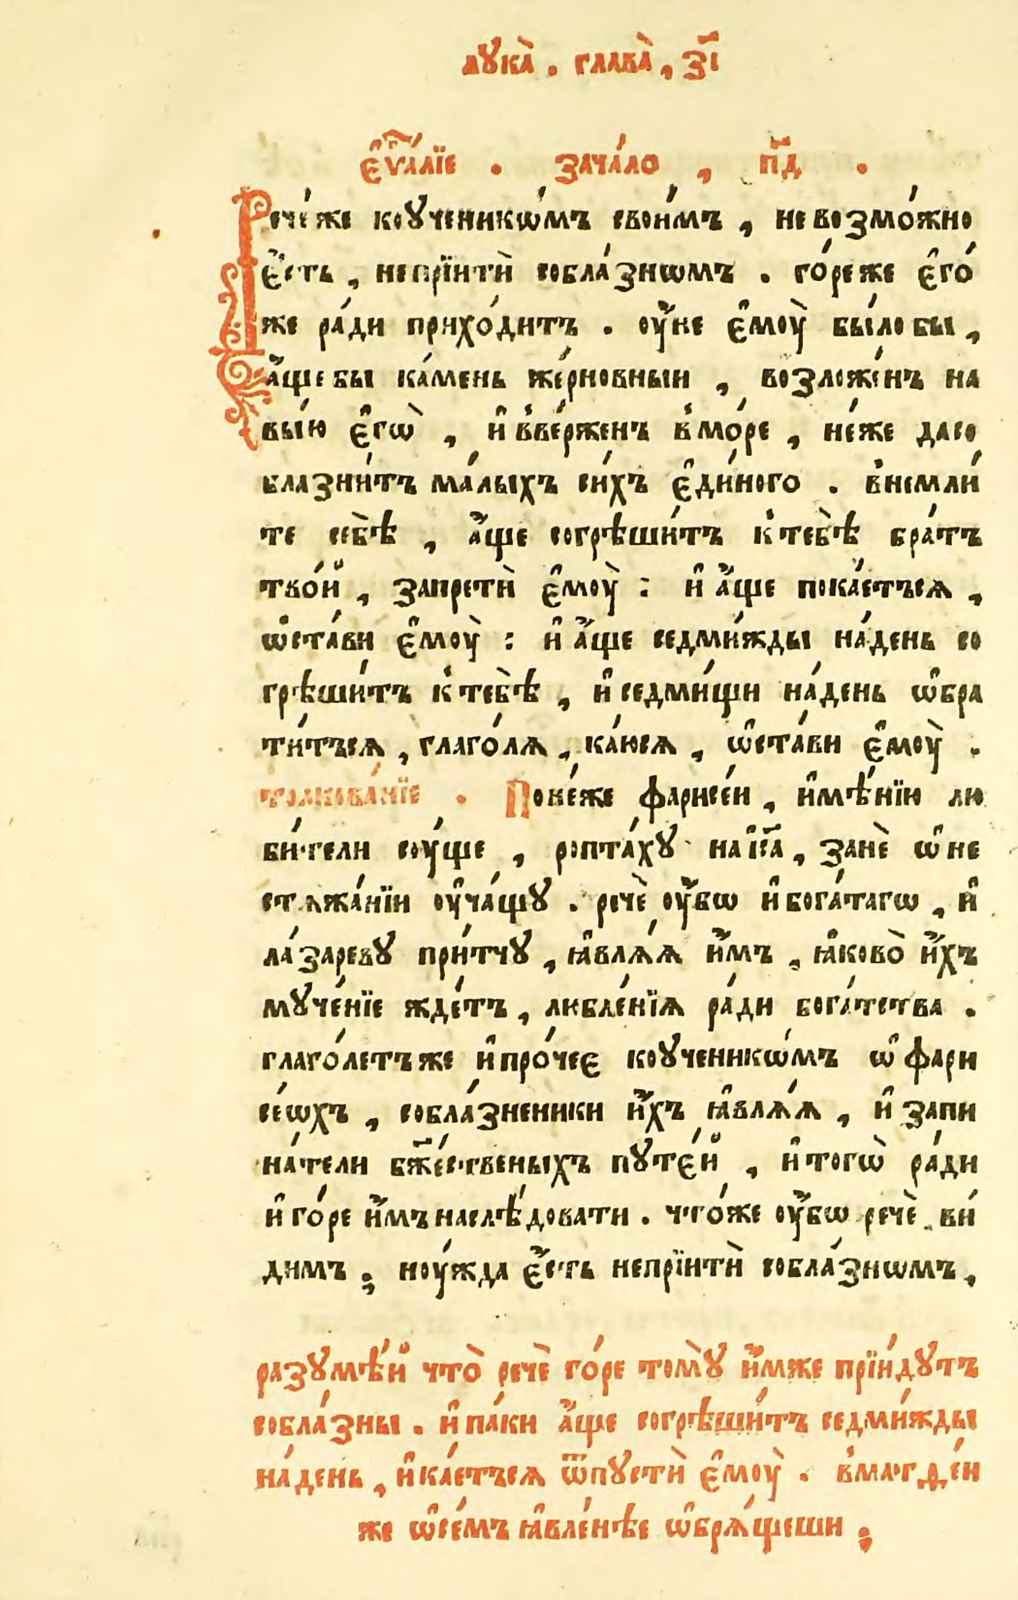 лꙋка̀ . глава̀ , з҃і
є҆ѵⷢ҇а́лїе . зача́ло , п҃д .
Рече́ же коученикѡ́мъ свои́мъ , невозмо́жно
є҆́сть , непрїитѝ собла́знѡмъ . го́реже є҆го́
же ра́ди прихо́дитъ . оу҆́не є҆моу̀ бы́лобы ,
а҆́щебы ка́мень же́рновныи , возложе́нъ на
вы́ю є҆гѡ̀ , и҆ вве́рженъ вмо́ре , не́же дасо
блазни́тъ ма́лыхъ си́хъ є҆ди́ного . внемли́
те себѣ̀ , а҆́ще согрѣши́тъ ктебѣ̀ бра́тъ
тво́й , запретѝ є҆моу̀ : и҆ а҆́ще пока́етъсѧ ,
ѡ҆ста́ви є҆моу̀ : и҆ а҆́ще седми́жды на́день со
грѣши́тъ ктебѣ̀ , и҆ седми́щи на́день ѡ҆бра
ти́тъсѧ , глаго́лѧ , ка́юсѧ , ѡ҆ста́ви є҆моу̀ .
толкова́нїе . Поне́же фарисе́и , и҆мѣ́нїю лю
би́тели соу́ще , ропта́хꙋ наі҆и҃са , занѐ ѡ҆не
стѧжа́нїи оу҆ча́щꙋ . речѐ оу҆́бѡ и҆бога́тагѡ , и҆
ла́заревꙋ при́тчꙋ , ꙗ҆влѧ́ѧ и҆́мъ , ꙗ҆ково̀ и҆́хъ
мꙋче́нїе жде́тъ , любле́нїѧ ра́ди бога́тства .
глаго́летъже и҆про́чеє коученикѡ́мъ ѡ҆ фари
се́ѡхъ , собла́зненики и҆́хъ ꙗ҆влѧ́ѧ , и҆ запи
на́тели бж҃е́ственыхъ пꙋте́й , и҆тогѡ̀ ра́ди
и҆ го́ре и҆́мънаслѣ́довати . что́же оу҆́бѡ речѐ , ви́
димъ ; ноу́жда є҆́сть непрїитѝ собла́знѡмъ ,
разꙋмѣ́й что̀ речѐ го́ре томꙋ̀ и҆́мже прїи́дꙋтъ
собла́зны . и҆ па́ки а҆́ще согрѣши́тъ седми́жды
на́день , и҆ ка́етъсѧ ѿпꙋстѝ є҆моу̀ . вматѳе́и
же ѡ҆се́мъ ꙗ҆вле́нѣе ѡ҆брѧ́щеши ;